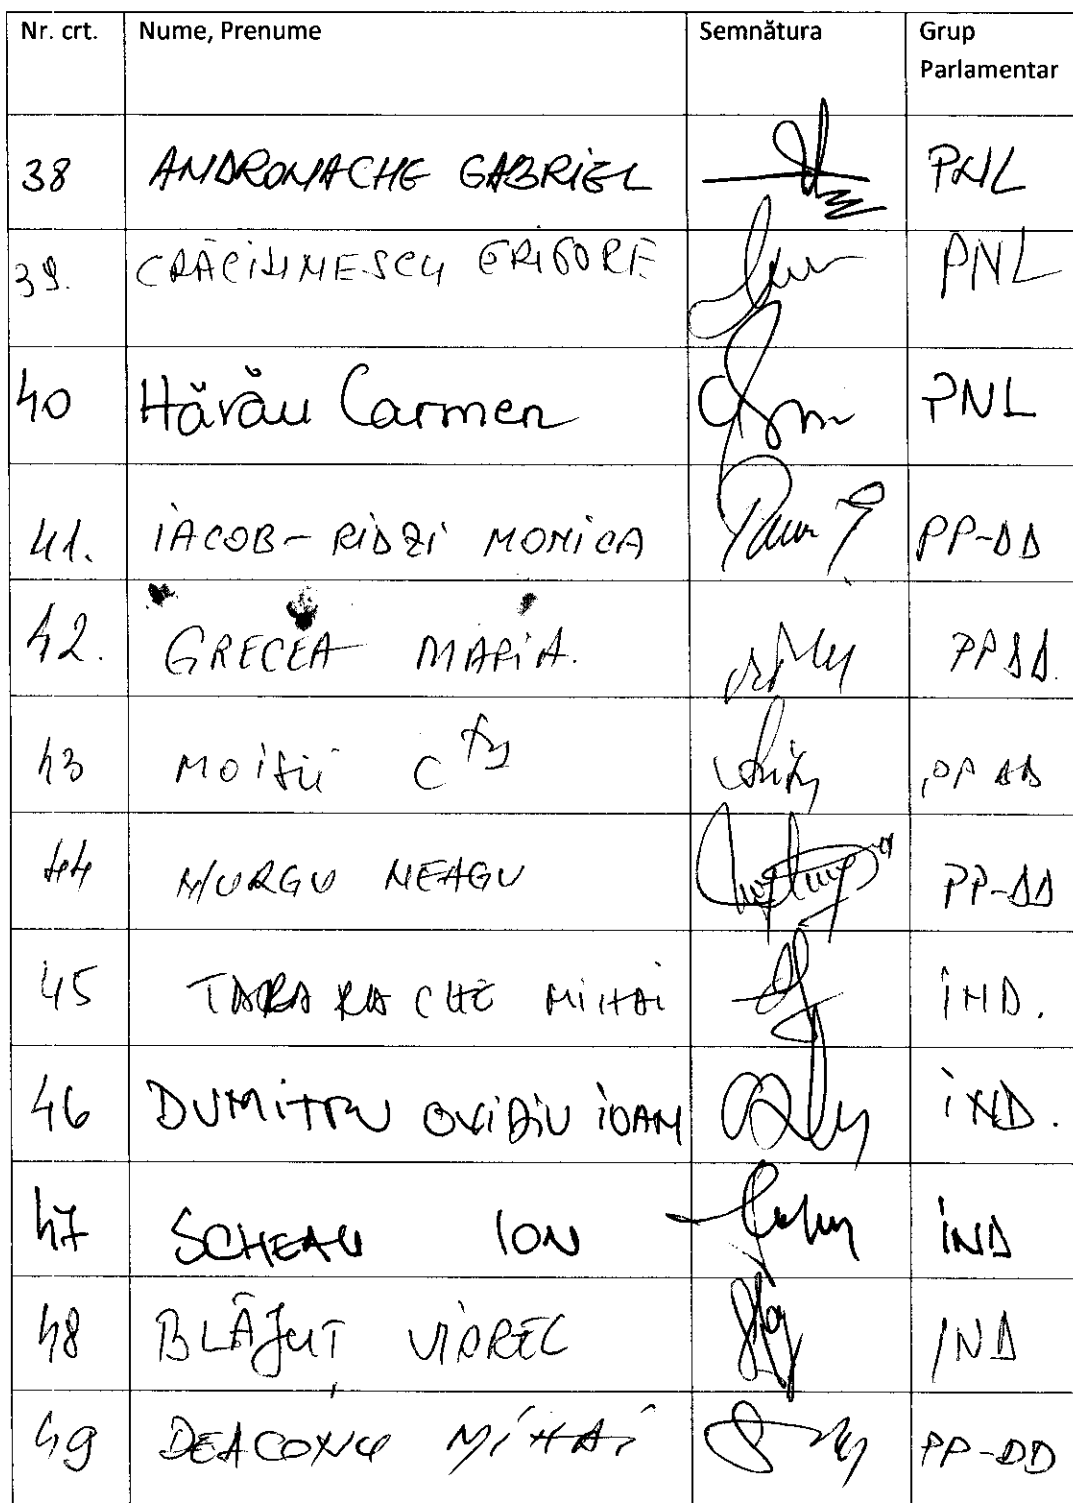 Nr. crt. Nume, Prenume Semnătura Grup
Parlamentar
38 ANDRONACHE GABRIEL PNL
39. CRĂCIUNESCU GRIGORE PNL
40 Hărău Carmen PNL
41. IACOB-RIDZI MONICA PP-DD
42. GRECEA MARIA. PPDD.
43 MOISII C PP DD
44 MURGU NEAGU PP-DD
45 TARARACHE MIHAI IND.
46 DUMITRU OVIDIU IOAN IND.
47 SCHEAU ION IND
48 BLĂJUȚ VIOREL IND
49 DEACONU MIHAI PP-DD